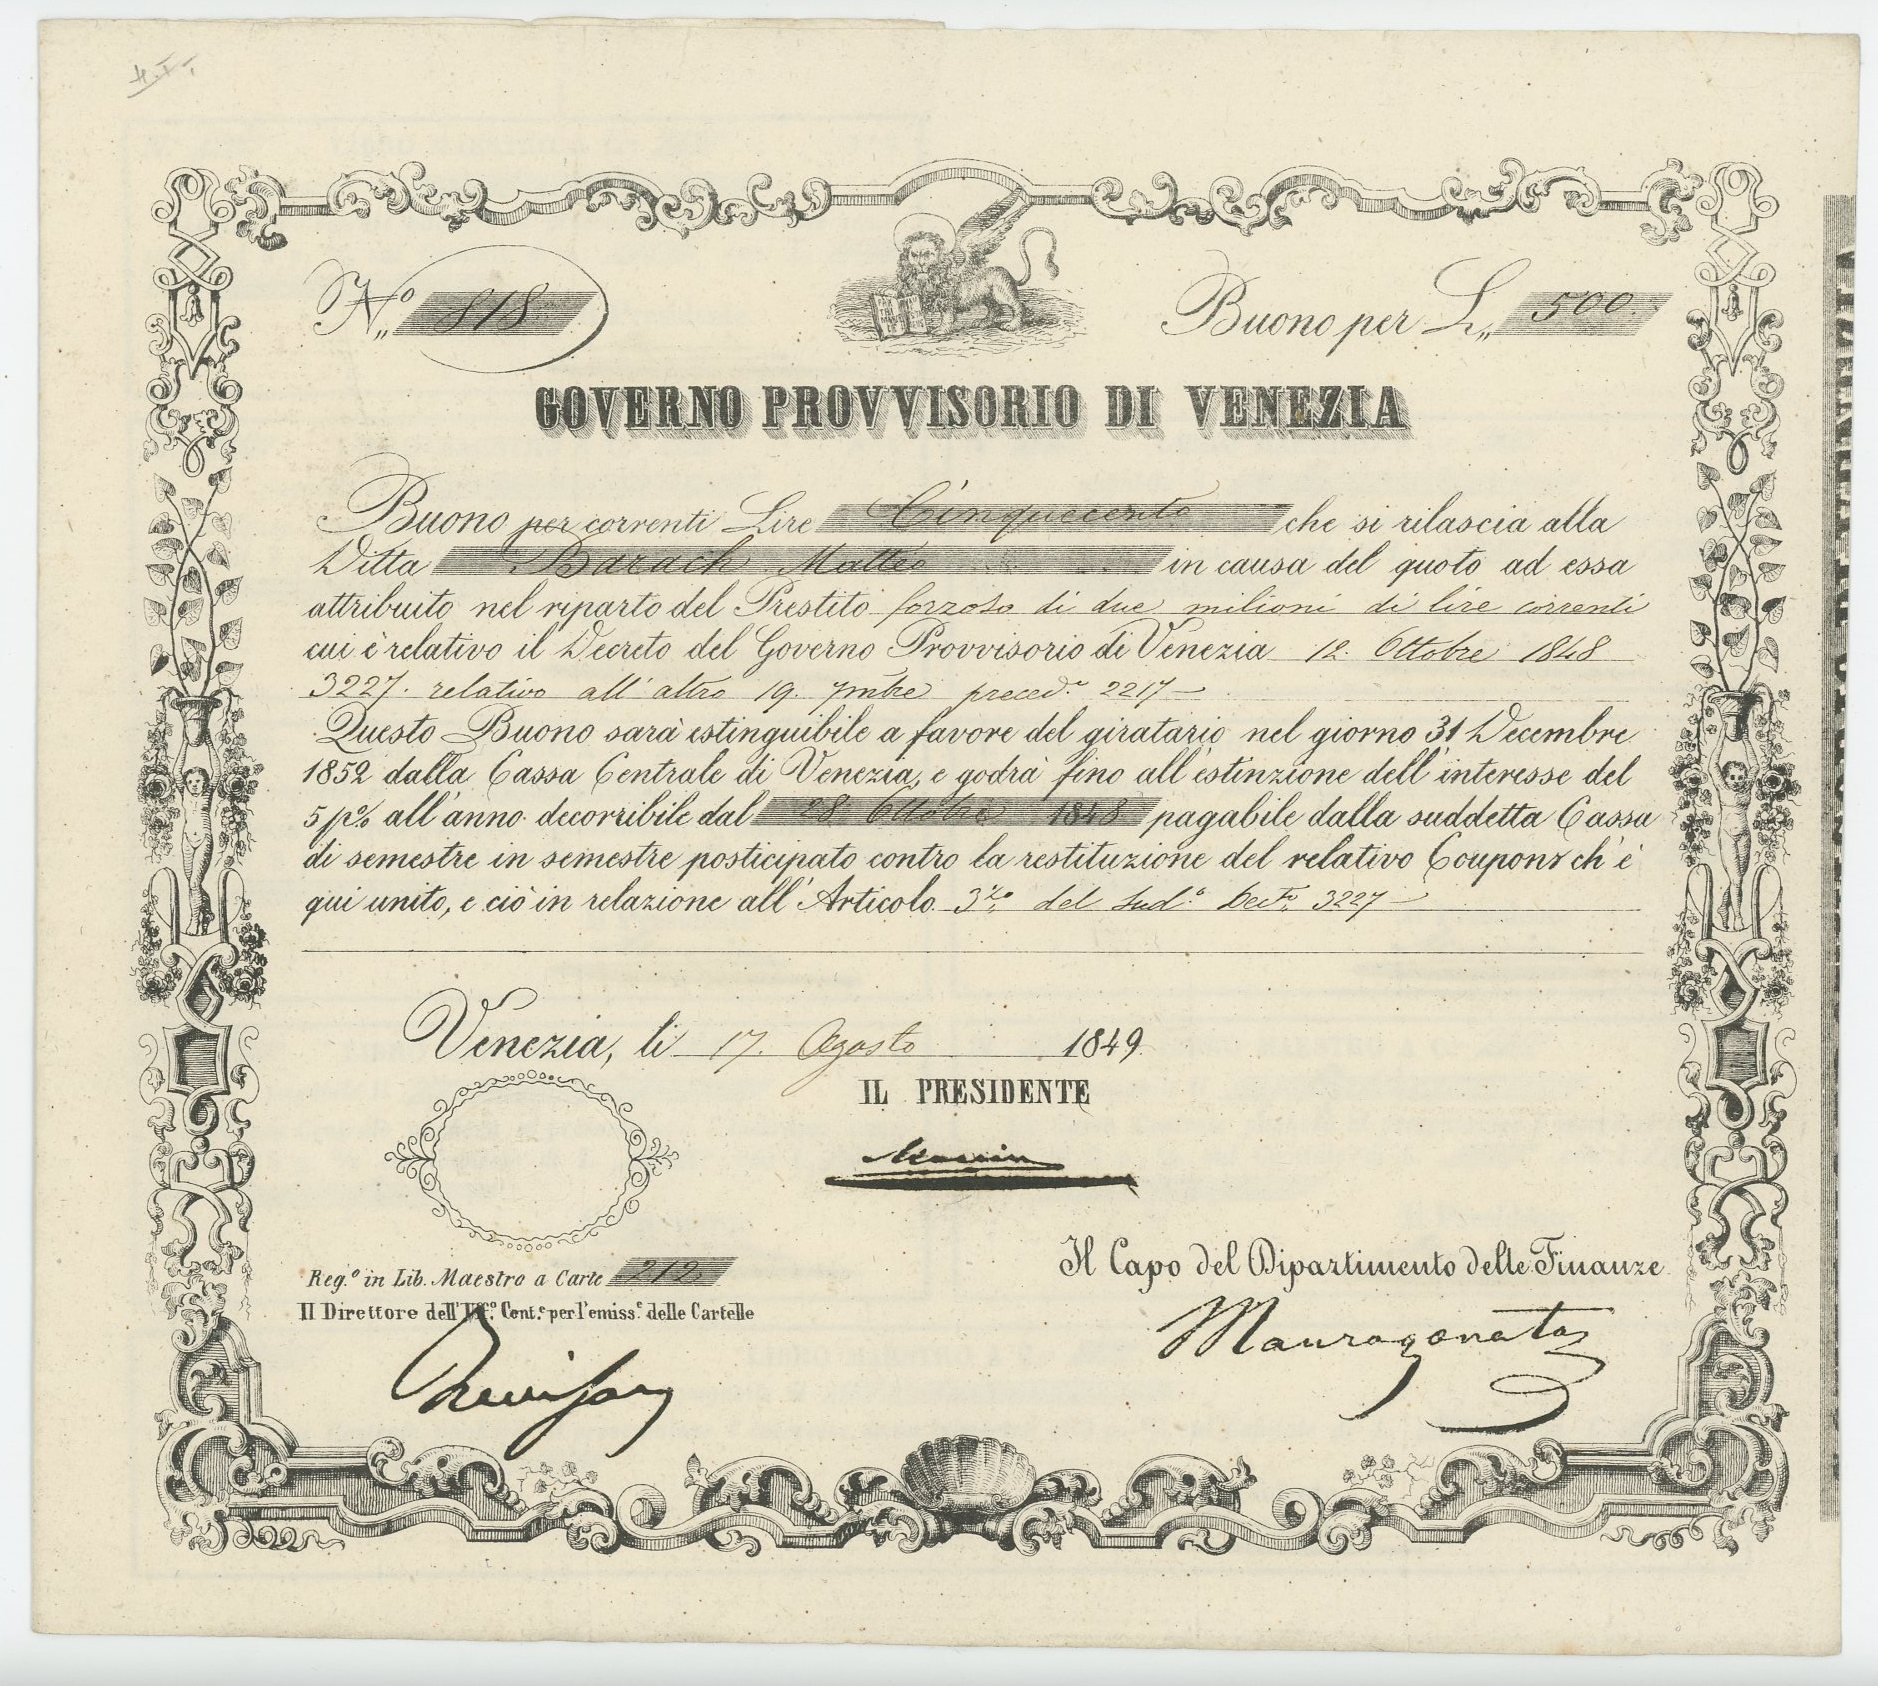 N.º 818
Buono per L. 500
GOVERNO PROVVISORIO DI VENEZIA
Buono per correnti Lire Cinquecento che si rilascia alla
Ditta Barach Matteo in causa del quoto ad essa
attribuito nel riparto del Prestito forzoso di due milioni di lire correnti
cui è relativo il Decreto del Governo Provvisorio di Venezia 12. Ottobre 1848
3227. relativo all'altro 19. 7mbre preced.e 2217
Questo Buono sarà estinguibile a favore del giratario nel giorno 31 Decembre
1852 dalla Cassa Centrale di Venezia, e godrà fino all'estinzione dell'interesse del
5 p% all'anno decorribile dal 28 Ottobre 1848 pagabile dalla suddetta Cassa
di semestre in semestre posticipato contro la restituzione del relativo Coupons ch'è
qui unito, e ciò in relazione all'Articolo 3zo del sud.o Dec.to 3227
Venezia, li 17. Agosto 1849.
IL PRESIDENTE
Manin
Reg.º in Lib. Maestro a Carte 212
Il Direttore dell'Uff.º Cent.e per l'emiss.e delle Cartelle
Il Capo del Dipartimento delle Finanze
Maurogonato